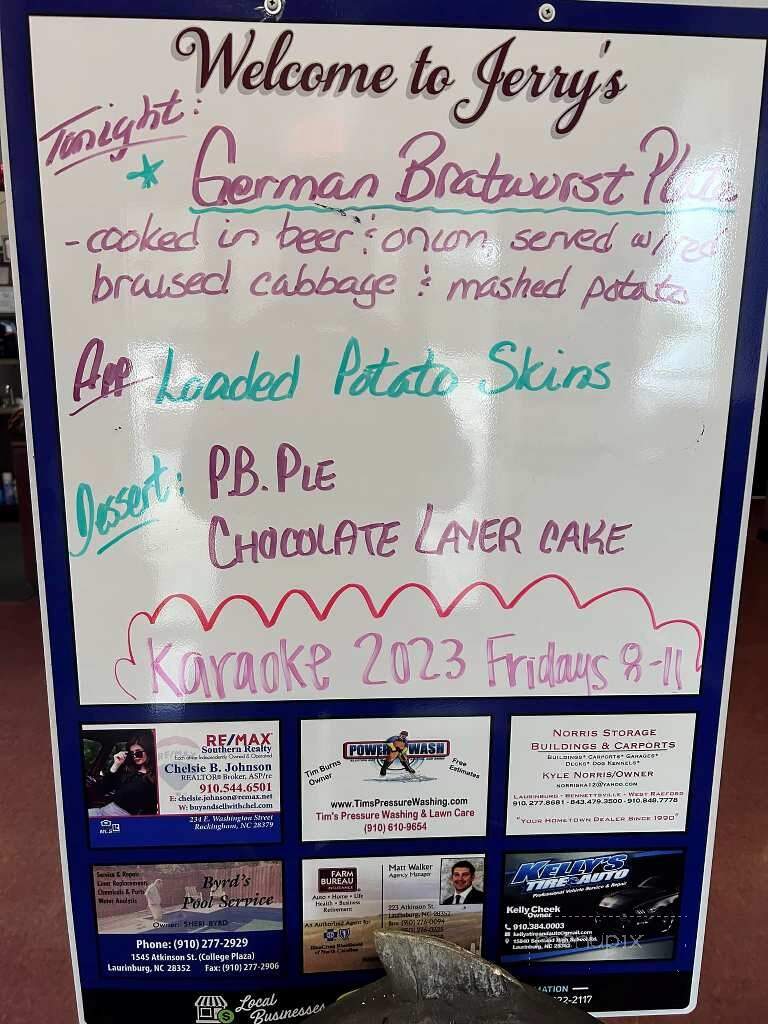 Welcome to Jerry's
Tonight:
* German Bratwurst Plate
- cooked in beer & onion, served w/ red
braised cabbage & mashed potato
App Loaded Potato Skins
Dessert: P.B. PIE
CHOCOLATE LAYER CAKE
Karaoke 2023 Fridays 8-11
RE/MAX
Southern Realty
Each office Independently Owned & Operated
Chelsie B. Johnson
REALTOR® Broker, ASP/re
910.544.6501
E: chelsie.johnson@remax.net
W: buyandsellwithchel.com
234 E. Washington Street
Rockingham, NC 28379
POWER WASH
Tim Burns
Owner
Free
Estimates
www.TimsPressureWashing.com
Tim's Pressure Washing & Lawn Care
(910) 610-9654
NORRIS STORAGE
BUILDINGS & CARPORTS
BUILDINGS* CARPORTS* GARAGES*
DECKS* DOG KENNELS*
KYLE NORRIS/OWNER
NORRISKA12@YAHOO.COM
LAURINBURG - BENNETTSVILLE - WEST RAEFORD
910.277.8681 - 843.479.3500 - 910.848.7778
"YOUR HOMETOWN DEALER SINCE 1990"
Service & Repair
Liner Replacement
Chemicals & Parts
Water Analysis
Byrd's
Pool Service
Owner: SHERI BYRD
Phone: (910) 277-2929
1545 Atkinson St. (College Plaza)
Laurinburg, NC 28352 Fax: (910) 277-2906
FARM
BUREAU
INSURANCE
Auto • Home • Life
Health • Business
Retirement
An Authorized Agent for:
BlueCross BlueShield
of North Carolina
Matt Walker
Agency Manager
223 Atkinson St.
Laurinburg, NC
KELLY'S
TIRE & AUTO
Professional Vehicle Service & Repair
Kelly Cheek
Owner
910.384.0003
kellystireandauto@gmail.com
15840 Scotland High School Rd.
Laurinburg, NC 28352
Local
Businesses
22-2117